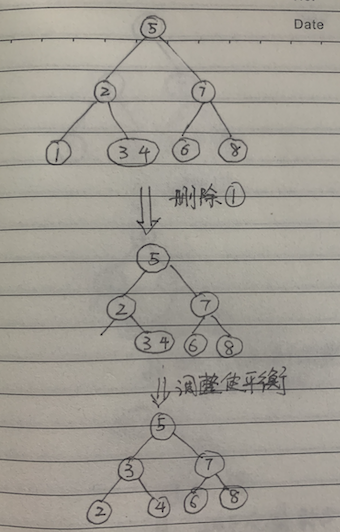 Date
5
2 7
1 3 4 6 8
删除①
5
2 7
3 4 6 8
调整使平衡
5
3 7
2 4 6 8